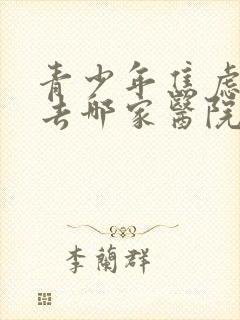 青少年焦虑
去哪家醫院
李蘭群